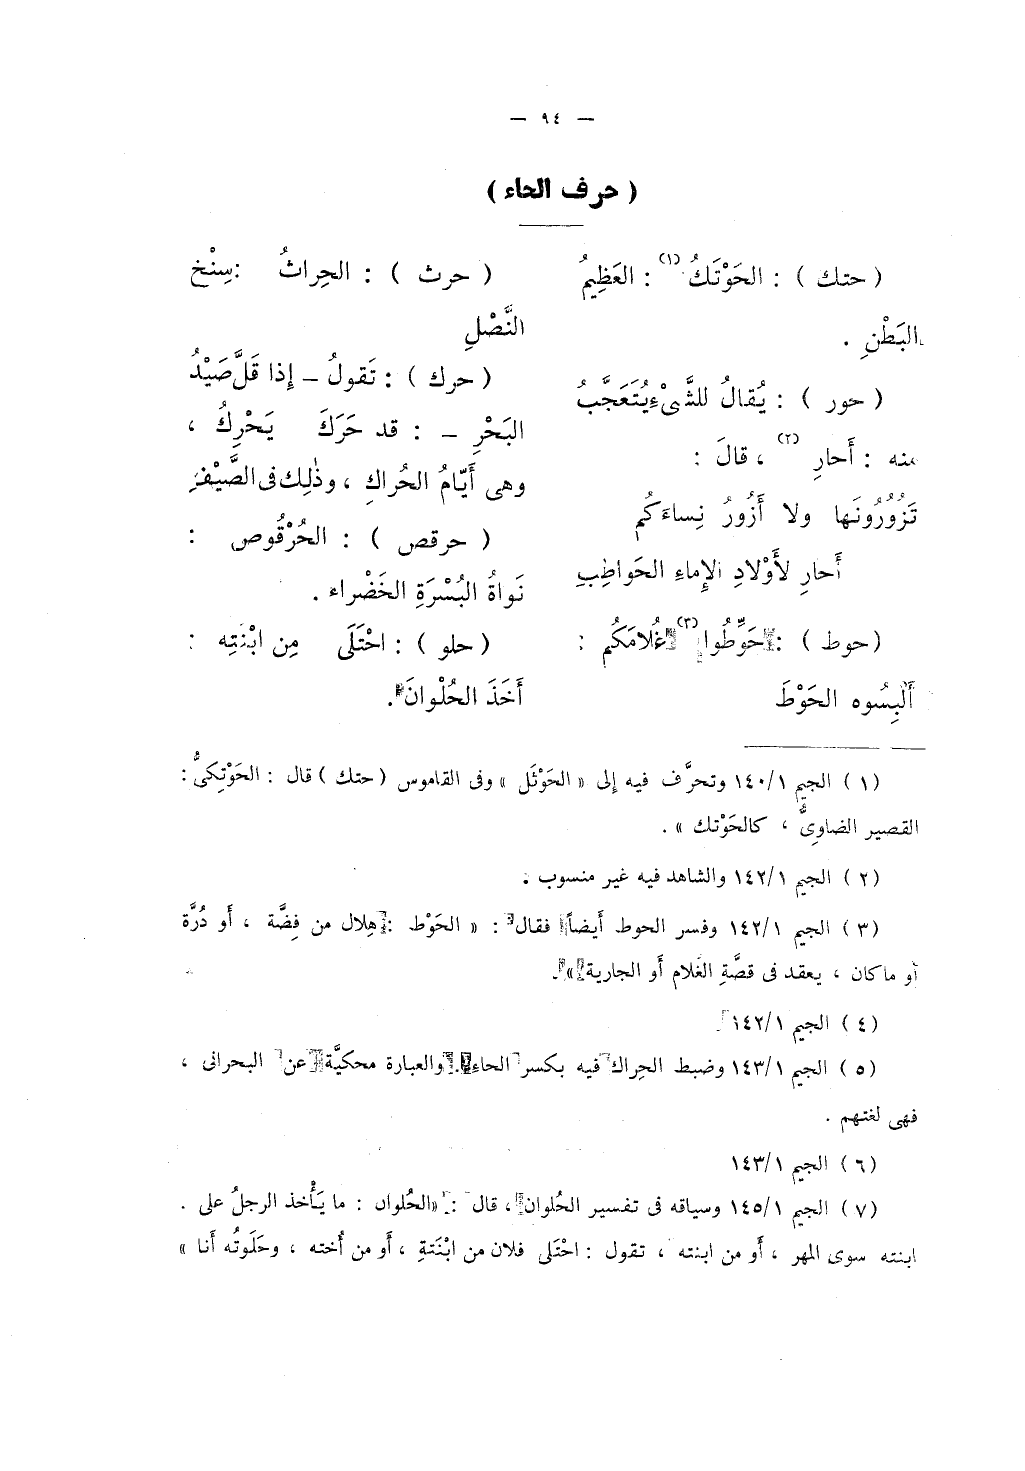 — ٩٤ —
( حرف الحاء )
( حتك ) : الحَوْتَكُ (١) : العَظِيمُ
البَطْنِ .
( حور ) : يُقالُ للشَّىْءِ يُتَعَجَّبُ
منه : أَحارِ (٢) ، قالَ :
تَزُورُونَها ولا أَزُورُ نِساءَكُم
أَحارِ لأَوْلادِ الإِماءِ الحَواطِبِ
( حوط ) : حَوِّطُوا (٣) غُلامَكُم :
أَلْبِسُوه الحَوْطَ
( حرث ) : الحِراثُ : سِنْخ
النَّصْلِ
( حرك ) : تَقولُ – إذا قَلَّ صَيْدُ
البَحْرِ – : قد حَرَكَ يَحْرِكُ ،
وهى أَيّامُ الحُراكِ ، وذٰلِك فى الصَّيْفِ
( حرقص ) : الحُرْقُوص :
نَواةُ البُسْرَةِ الخَضْراء .
( حلو ) : احْتَلَى مِن ابْنَتِه :
أَخَذَ الحُلْوانَ .
( ١ ) الجيم ١/١٤٠ وتحرَّف فيه إلى « الحَوْثَل » وفى القاموس ( حتك ) قال : الحَوْتِكىُّ :
القصير الضاوِىُّ ، كالحَوْتك » .
( ٢ ) الجيم ١/١٤٢ والشاهد فيه غير منسوب .
( ٣ ) الجيم ١/١٤٢ وفسر الحوط أيضاً فقال : « الحَوْط : هِلال من فِضَّة ، أَو دُرَّة
أو ماكان ، يعقد فى قصَّةِ الغُلام أَو الجارية » .
( ٤ ) الجيم ١/١٤٢
( ٥ ) الجيم ١/١٤٣ وضبط الحِراك فيه بكسر الحاء . والعبارة محكيَّة عن البحرانى ،
فهى لغتهم .
( ٦ ) الجيم ١/١٤٣
( ٧ ) الجيم ١/١٤٥ وسياقه فى تفسير الحُلوان ، قال : « الحُلوان : ما يَأْخذ الرجلُ على .
ابنته سوى المهر ، أَو من ابنته ، تقول : احْتَلى فلان من ابْنَتةِ ، أَو من أُخته ، وحَلَوتُه أَنا »